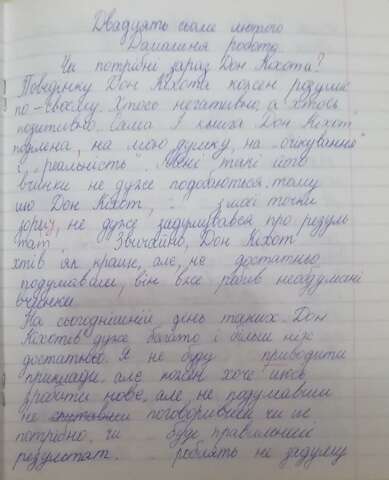 Двадцять сьоме лютого
Домашня робота
Чи потрібні зараз Дон Кіхоти?
Поведінку Дон Кіхота кожен розуміє
по-своєму. Хтось негативно, а хтось
позитивно. Сама і книга "Дон Кіхот"
поділена, на мою думку, на "очікування"
і "реальність". Мені такі його
вчинки не дуже подобаються. тому
що Дон Кіхот, з моєї точки
зору, не дуже задумувався про резуль
тат. Звичайно, Дон Кіхот
хтів як краще, але, не достатньо
подумавши, він вже робив необдумані
вчинки.
На сьогоднішній день таких Дон
Кіхотів дуже багато і більш ніж
достатньо. Я не буду приводити
приклади, але кожен хоче щось
зробити нове, але, не подумавши
не поговоривши чи це
потрібно, чи буде правильний
результат. роблять не задуму